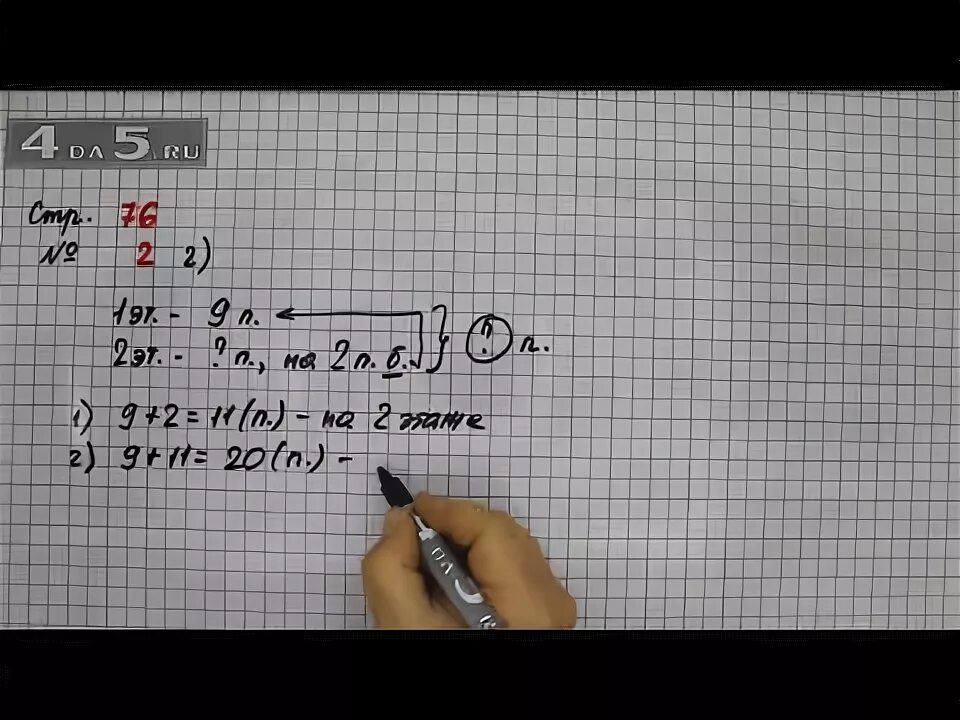 4 DA 5 .RU
Стр. 76
№ 2 2)
1эт. - 9 п.
2эт. - ? п., на 2 п. б. ? п.
1) 9 + 2 = 11 (п.) - на 2 этаже
2) 9 + 11 = 20 (п.) -